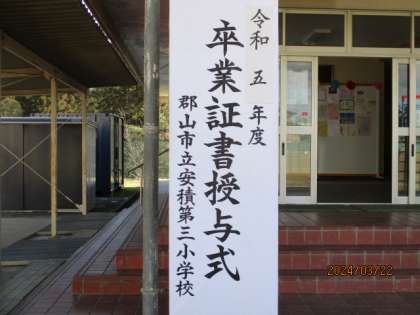 令和五年度
卒業証書授与式
郡山市立安積第三小学校
2024/03/22